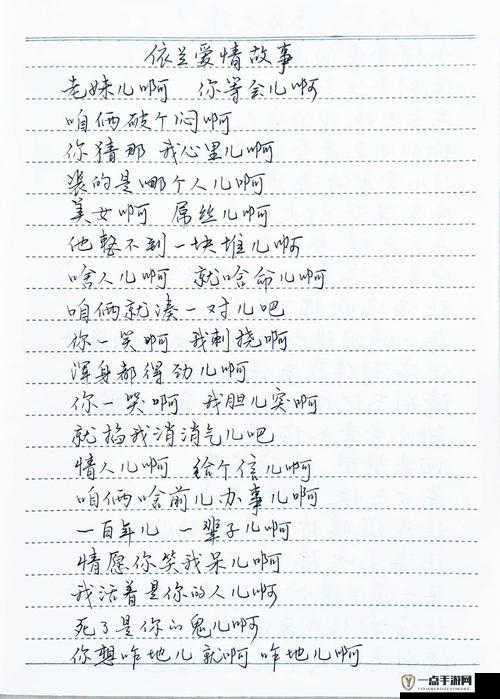 依兰爱情故事
老妹儿啊 你等会儿啊
咱俩破个闷啊
你猜那 我心里儿啊
装的是哪个人儿啊
美女啊 屌丝儿啊
他整不到一块堆儿啊
啥人儿啊 就啥命儿啊
咱俩就凑一对儿吧
你一笑啊 我刺挠啊
浑身都得劲儿啊
你一哭啊 我胆儿突啊
就掐我消消气儿吧
情人儿啊 给个信儿啊
咱俩啥前儿办事儿啊
一百年儿 一辈子儿啊
情愿你笑我呆儿啊
我活着是你的人儿啊
死了是你的鬼儿啊
你想咋地儿就啊 咋地儿啊
一点手游网